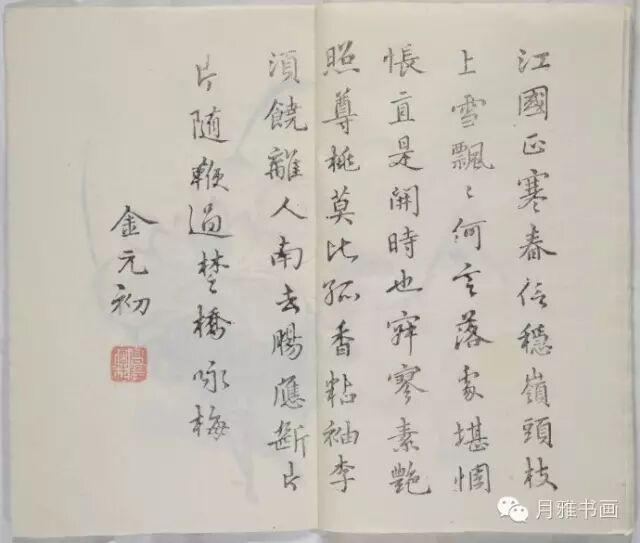 江國正寒春信穩嶺頭枝
上雪飄〻何言落處堪惆
悵直是開時也寂寥素艷
照尊桃莫比孤香粘袖李
須饒離人南去腸應斷片
片随鞭過楚橋咏梅
金元初
月雅书画